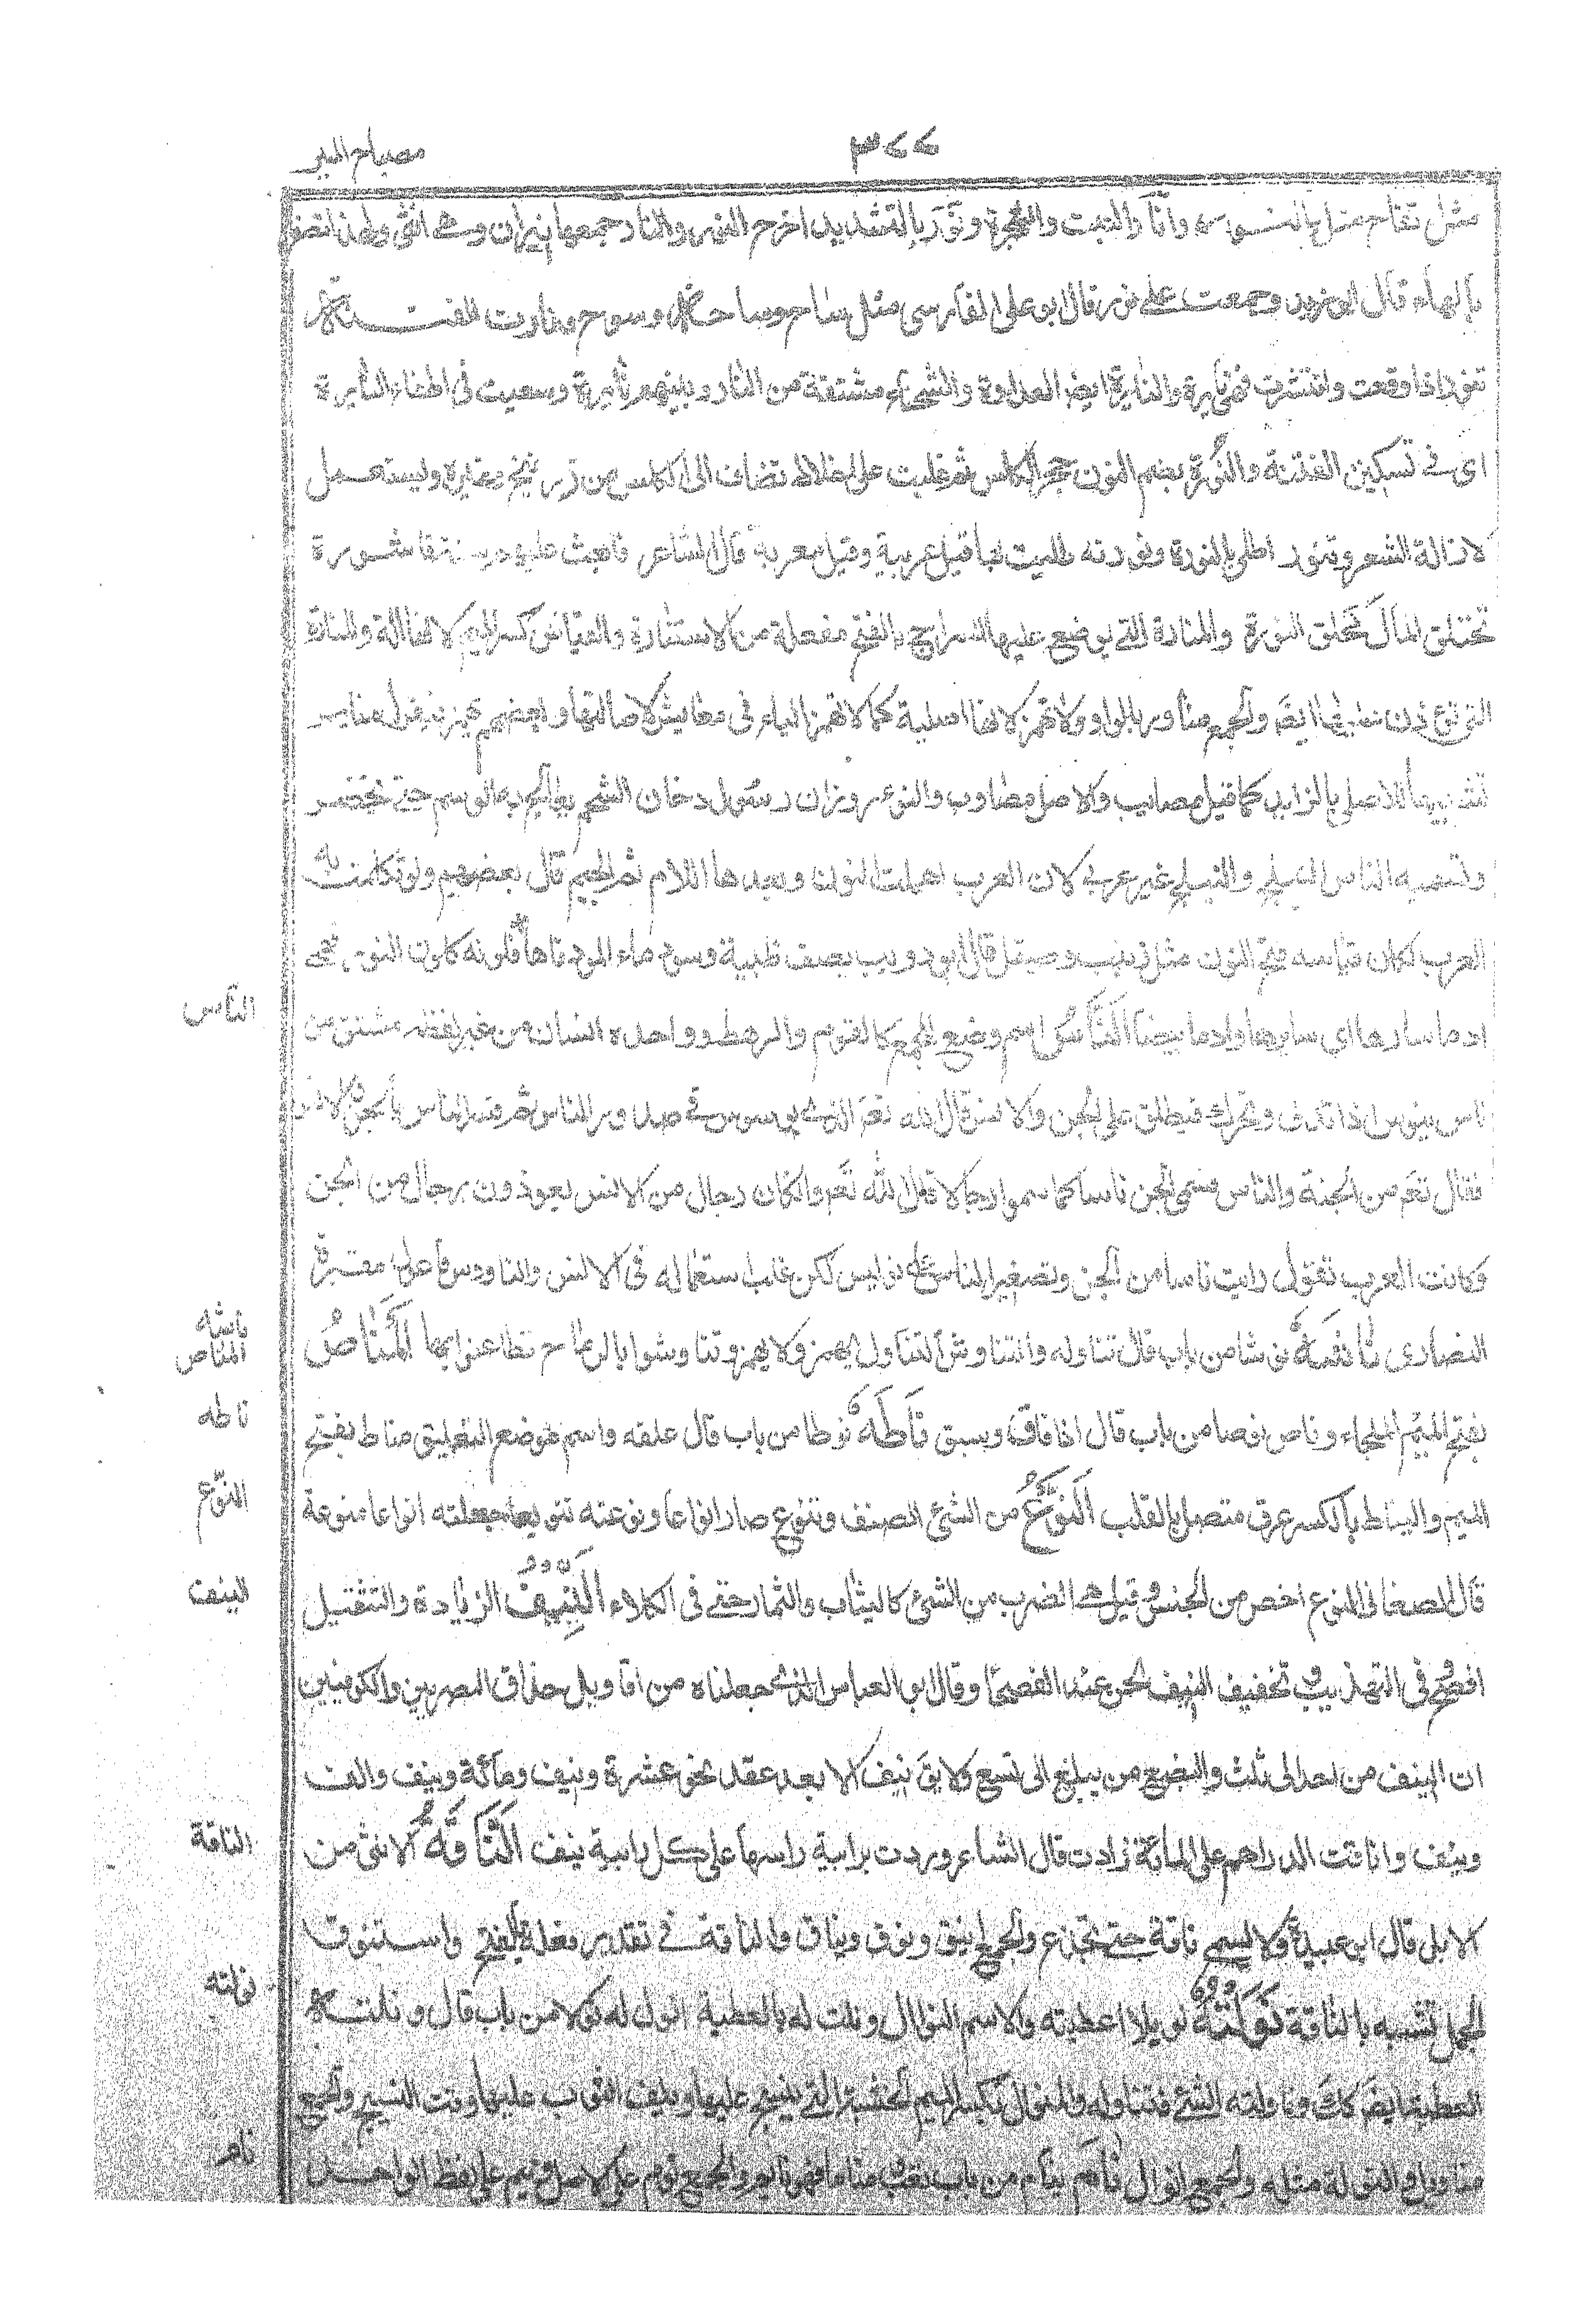 مصباح المنير
٣٧٧
مثل تفاح وانار النبت والشجرة ونور بالتشديد اخرج النور والنار جمعها نيران وهى انثى ولهذا تصغر
بالهاء قال ابو زيد وجمعت على نور قال ابو على الفارسى مثل ساحة وسوح ونارت الفتنة
تنور اذا وقعت وانتشرت فهى نايرة والنايرة ايضا العداوة والشحناء مشتقة من النار وبينهم نايرة وسعيت فى اطفاء النايرة
اى فى تسكين الفتنة والنورة بضم النون حجر الكلس ثم غلبت على اخلاط تضاف الى الكلس من زرنيخ وغيره ويستعمل
لازالة الشعر وتنور اطلى بالنورة ونورته طليت بها قيل عربية وقيل معربة قال الشاعر فابعث عليهم سنة قاشورة
تحتلق المال كحلق النورة والمنارة التى يوضع عليها السراج بالفتح مفعلة من الاستنارة والقياس كسر الميم لانها الة والمنارة
التى يؤذن عليها ايضا والجمع مناور بالواو ولا تهمز لانها اصلية كما لا تهمز الياء فى معايش لاصالتها وبعضهم يهمز فيقول مناير
تشبيها للاصلى بالزايد كما قيل مصايب والاصل مصاوب والنور وزان رسول دخان الشحم يعالج به الوسم حتى يخضر
وتسميه الناس النيلج والنيلج غير عربى لان العرب اهملت النون وبعدها اللام ثم الجيم قال بعضهم ولو تكلمت به
العرب لكان قياسه فتح النون مثل زينب وصيقل قال ابو ذويب يصف ظبية وسود ماء المرد فاها فلونه كلون النور فهى
ادما سارها اى سايرها وادما بيضا اَلنَّاسُ اسم وضع للجمع كالقوم والرهط وواحده انسان من غير لفظه مشتق من
ناس ينوس اذا تدلى وتحرك فيطلق على الجن والانس قال الله تع الذى يوسوس فى صدور الناس ثم فسر الناس بالجن والانس
فقال تع من الجنة والناس وسمى الجن ناسا كما سموا رجالا قال الله تع وانه كان رجال من الانس يعوذون برجال من الجن
وكانت العرب تقول رايت ناسا من الجن وتصغير الناس نويس لكن غلب استعماله فى الانس والناووس فاعول مقبرة
النصارى نَاشَهُ نوشا من باب قال تناوله والتناوش التناول يهمز ولا يهمز وتناوشوا بالرماح تطاعنوا بها اَلْمَنَاصُ
بفتح الميم الملجاء وناص نوصا من باب قال اذا فات وسبق نَاطَهُ نوطا من باب قال علقه واسم موضع التعليق مناط بفتح
الميم والنياط بالكسر عرق متصل بالقلب اَلنَّوْعُ من الشئ الصنف وتنوع صار انواعا ونوعته تنويعا جعلته انواعا منوعة
قال الصغانى النوع اخص من الجنس وقيل هى الضرب من الشئ كالثياب والثمار حتى فى الكلاء اَلنَّيِّفُ الزيادة والتثقيل
افصح وفى التهذيب وتخفيف النيف لحن عند الفصحا وقال ابو العباس الذى جعلناه من اقاويل حذاق البصريين والكوفيين
ان النيف من احد الى ثلث والبضع من اربع الى تسع ولا يق نيف الا بعد عقد نحو عشرة ونيف ومائة ونيف والف
ونيف وانافت الدراهم على المائة زادت قال الشاعر وردت برابية راسها على كل رابية نيف اَلنَّاقَةُ الانثى من
الابل قال ابو عبيدة ولا تسمى ناقة حتى تجذع والجمع اينق ونوق ونياق والناقة فى تقدير فعلة بالفتح واستنوق
الجمل تشبه بالناقة نَوَّلْتُهُ تنويلا اعطيته والاسم النوال ونلت له بالعطية انول له نولا من باب قال ونلته
العطية ايضا كك وناولته الشئ فتناوله والمنوال بكسر الميم الخشبة التى ينسج عليها ويلف الثوب عليها وقت النسج والجمع
مناويل والنول مثله والجمع انوال نَامَ ينام من باب تعب نوما ومناما فهو نايم والجمع نوم على الاصل ونيم على لفظ الواحد
الناس
ناشه
المناص
ناطه
النوع
النيف
الناقة
نولته
نام